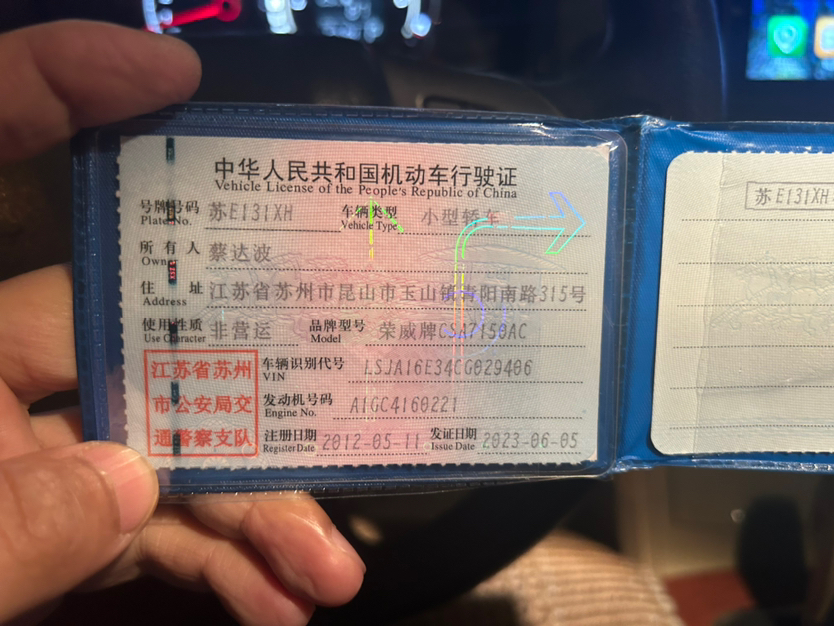 中华人民共和国机动车行驶证
Vehicle License of the People's Republic of China
号牌号码 苏E131XH 车辆类型 小型轿车
Plate No. Vehicle Type
所有人 蔡达波
Owner
住址 江苏省苏州市昆山市玉山镇青阳南路315号
Address
使用性质 非营运 品牌型号 荣威牌CSA7150AC
Use Character Model
江苏省苏州
市公安局交
通警察支队
车辆识别代号 LSJA16E34CG029406
VIN
发动机号码 A1GC4160221
Engine No.
注册日期 2012-05-11 发证日期 2023-06-05
Register Date Issue Date
苏E131XH